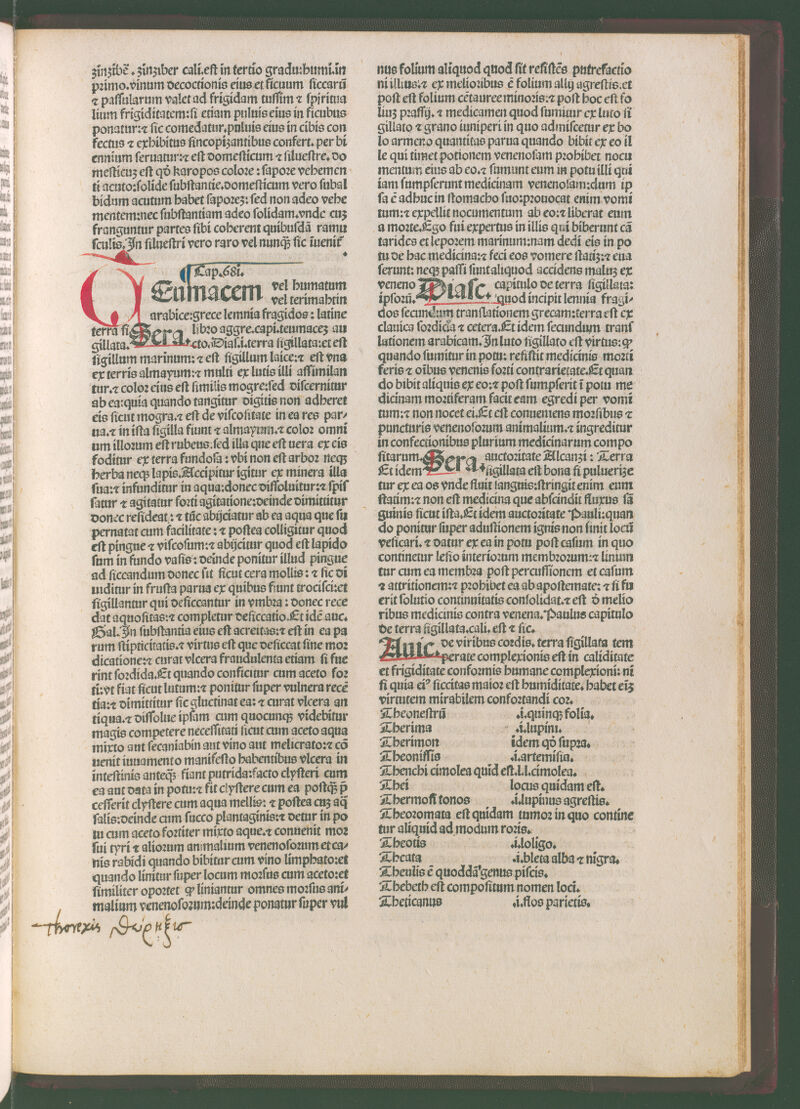 zinzibē. zinziber cali. est in tertio gradu: humi. in
primo. vinum decoctionis eius et ficuum siccarū
⁊ passularum valet ad frigidam tussim ⁊ spiritua
lium frigiditatem: si etiam puluis eius in ficubus
ponatur: ⁊ sic comedatur. puluis eius in cibis con
fectus ⁊ exhibitus sincopizantibus confert. per bi
ennium seruatur: ⁊ est domesticum ⁊ siluestre. do
mesticuz est qd̄ karopos colore: sapore vehemen
ti acuto: solide substantie. domesticum vero subal
bidum acutum habet saporez: sed non adeo vehe
mentem: nec substantiam adeo solidam. vnde cuz
franguntur partes sibi coherent quibusdā ramu
sculis. In siluestri vero raro vel nunqȝ sic īuenit᷑.
Cap. 681.
Teumacem vel humatum
vel terimahtin
arabice: grece lemnia fragidos: latine
terra si Sera. libro aggre. capi. teumacez au
gillata. cto. Dias. i. terra sigillata: et est
sigillum marinum: ⁊ est sigillum laice: ⁊ est vna
ex terris almayum: ⁊ multi ex lutis illi assimilan
tur. ⁊ color eius est similis mogre: sed discernitur
ab ea: quia quando tangitur digitis non adheret
eis sicut mogra. ⁊ est de viscositate in ea res par-
ua. ⁊ in ista sigilla fiunt ⁊ almayum. ⁊ color omni
um illorum est rubeus. sed illa que est uera ex eis
foditur ex terra fundosa: vbi non est arbor neqȝ
herba neqȝ lapis. Accipitur igitur ex minera illa
sua: ⁊ infunditur in aqua: donec dissoluitur: ⁊ spis
satur ⁊ agitatur forti agitatione: deinde dimittitur
donec resideat: ⁊ tūc abijciatur ab ea aqua que su
pernatat cum facilitate: ⁊ postea colligitur quod
est pingue ⁊ viscosum: ⁊ abijcitur quod est lapido
sum in fundo vasis: deinde ponitur illud pingue
ad siccandum donec sit sicut cera mollis: ⁊ sic di
uiditur in frusta parua ex quibus fiunt trocisci: et
sigillantur qui desiccantur in vmbra: donec rece
dat aquositas: ⁊ completur desiccatio. Et idē auc.
Gal. In substantia eius est acreitas: ⁊ est in ea pa
rum stipticitatis. ⁊ virtus est que desiccat sine mor
dicatione: ⁊ curat vlcera fraudulenta etiam si fue
rint sordida. Et quando conficitur cum aceto for
ti: vt fiat sicut lutum: ⁊ ponitur super vulnera recē
tia: ⁊ dimittitur sic gluctinat ea: ⁊ curat vlcera an
tiqua. ⁊ dissolue ipsam cum quocunqȝ videbitur
magis competere necessitati sicut cum aceto aqua
mixto aut secaniabin aut vino aut melicrato: ⁊ cō
uenit iuuamento manifesto habentibus vlcera in
intestinis anteqȝ fiant putrida: facto clysteri cum
ea aut data in potu: ⁊ fit clystere cum ea postqȝ p̄
cesserit clystere cum aqua mellis: ⁊ postea cuz aq̄
salis: deinde cum succo plantaginis: ⁊ detur in po
tu cum aceto fortiter mixto aque. ⁊ conuenit mor
sui tyri ⁊ aliorum animalium venenosorum: et ca-
nis rabidi quando bibitur cum vino limphato: et
quando linitur super locum morsus cum aceto: et
similiter oportet ꝙ liniantur omnes morsus ani-
malium venenosorum: deinde ponatur super vul
Thorexis θώρηξις
nus folium aliquod quod sit resistēs putrefactio
ni illius. ⁊ ex melioribus ē folium allij agrestis. et
post est folium cētauree minoris: ⁊ post hoc est fo
liuz prassij. ⁊ medicamen quod sumitur ex luto si
gillato ⁊ grano iuniperi in quo admiscetur ex bo
lo armeno quantitas parua quando bibit ex eo il
le qui timet potionem venenosam prohibet nocu
mentum eius ab eo. ⁊ sumunt eum in potu illi qui
iam sumpserunt medicinam venenosam: dum ip
sa ē adhuc in stomacho suo: prouocat enim vomi
tum: ⁊ expellit nocumentum ab eo: ⁊ liberat eum
a morte. Ego fui expertus in illis qui biberunt cā
tarides et leporem marinum: nam dedi eis in po
tu de hac medicina: ⁊ feci eos vomere statiz: ⁊ eua
serunt: neqȝ passi sunt aliquod accidens maluz ex
veneno Diasc. capitulo de terra sigillata:
ipsorū. quod incipit lennia fragi-
dos secundum translationem grecam: terra est ex
clauica sordida ⁊ cetera. Et idem secundum trans
lationem arabicam. In luto sigillato est virtus: ꝙ
quando sumitur in potu: resistit medicinis morti
feris ⁊ oībus venenis forti contrarietate. Et quan
do bibit aliquis ex eo: ⁊ post sumpserit ī potu me
dicinam mortiferam facit eam egredi per vomi
tum: ⁊ non nocet ei. Et est conueniens morsibus ⁊
puncturis venenosorum animalium. ⁊ ingreditur
in confectionibus plurium medicinarum compo
sitarum. Sera. auctoritate Alcanzi: Terra
Et idem sigillata est bona si pulueríze
tur ex ea os vnde fluit sanguis: stringit enim eum
statim: ⁊ non est medicina que abscindit fluxus sā
guinis sicut ista. Et idem auctoritate Pauli: quan
do ponitur super adustionem ignis non sinit locū
vesicari. ⁊ datur ex ea in potu post casum in quo
continetur lesio interiorum membrorum: ⁊ liniun
tur cum ea membra post percussionem et casum
⁊ attritionem: ⁊ prohibet ea ab apostemate: ⁊ si fu
erit solutio continuitatis consolidat. ⁊ est d̄ melio
ribus medicinis contra venena. Paulus capitulo
de terra sigillata. cali. est ⁊ sic.
Auic. de viribus cordis. terra sigillata tem
perate complexionis est in caliditate
et frigiditate conformis humane complexioni: ni
si quia ei⁹ siccitas maior est humiditate. habet eīz
virtutem mirabilem confortandi cor.
Theonestrū .i. quinqȝ folia.
Therima .i. lupini.
Therimon idem qd̄ supra.
Theonissis .i. artemisia.
Thenchi cimolea quid est. l. l. cimolea.
Thei locus quidam est.
Thermosi tonos .i. lupinus agrestis.
Theoromata est quidam tumor in quo contine
tur aliquid ad modum roris.
Theotis .i. loligo.
Theata .i. bleta alba ⁊ nigra.
Theulis ē quoddā genus piscis.
Thebeth est compositum nomen loci.
Theticanus .i. flos parietis.